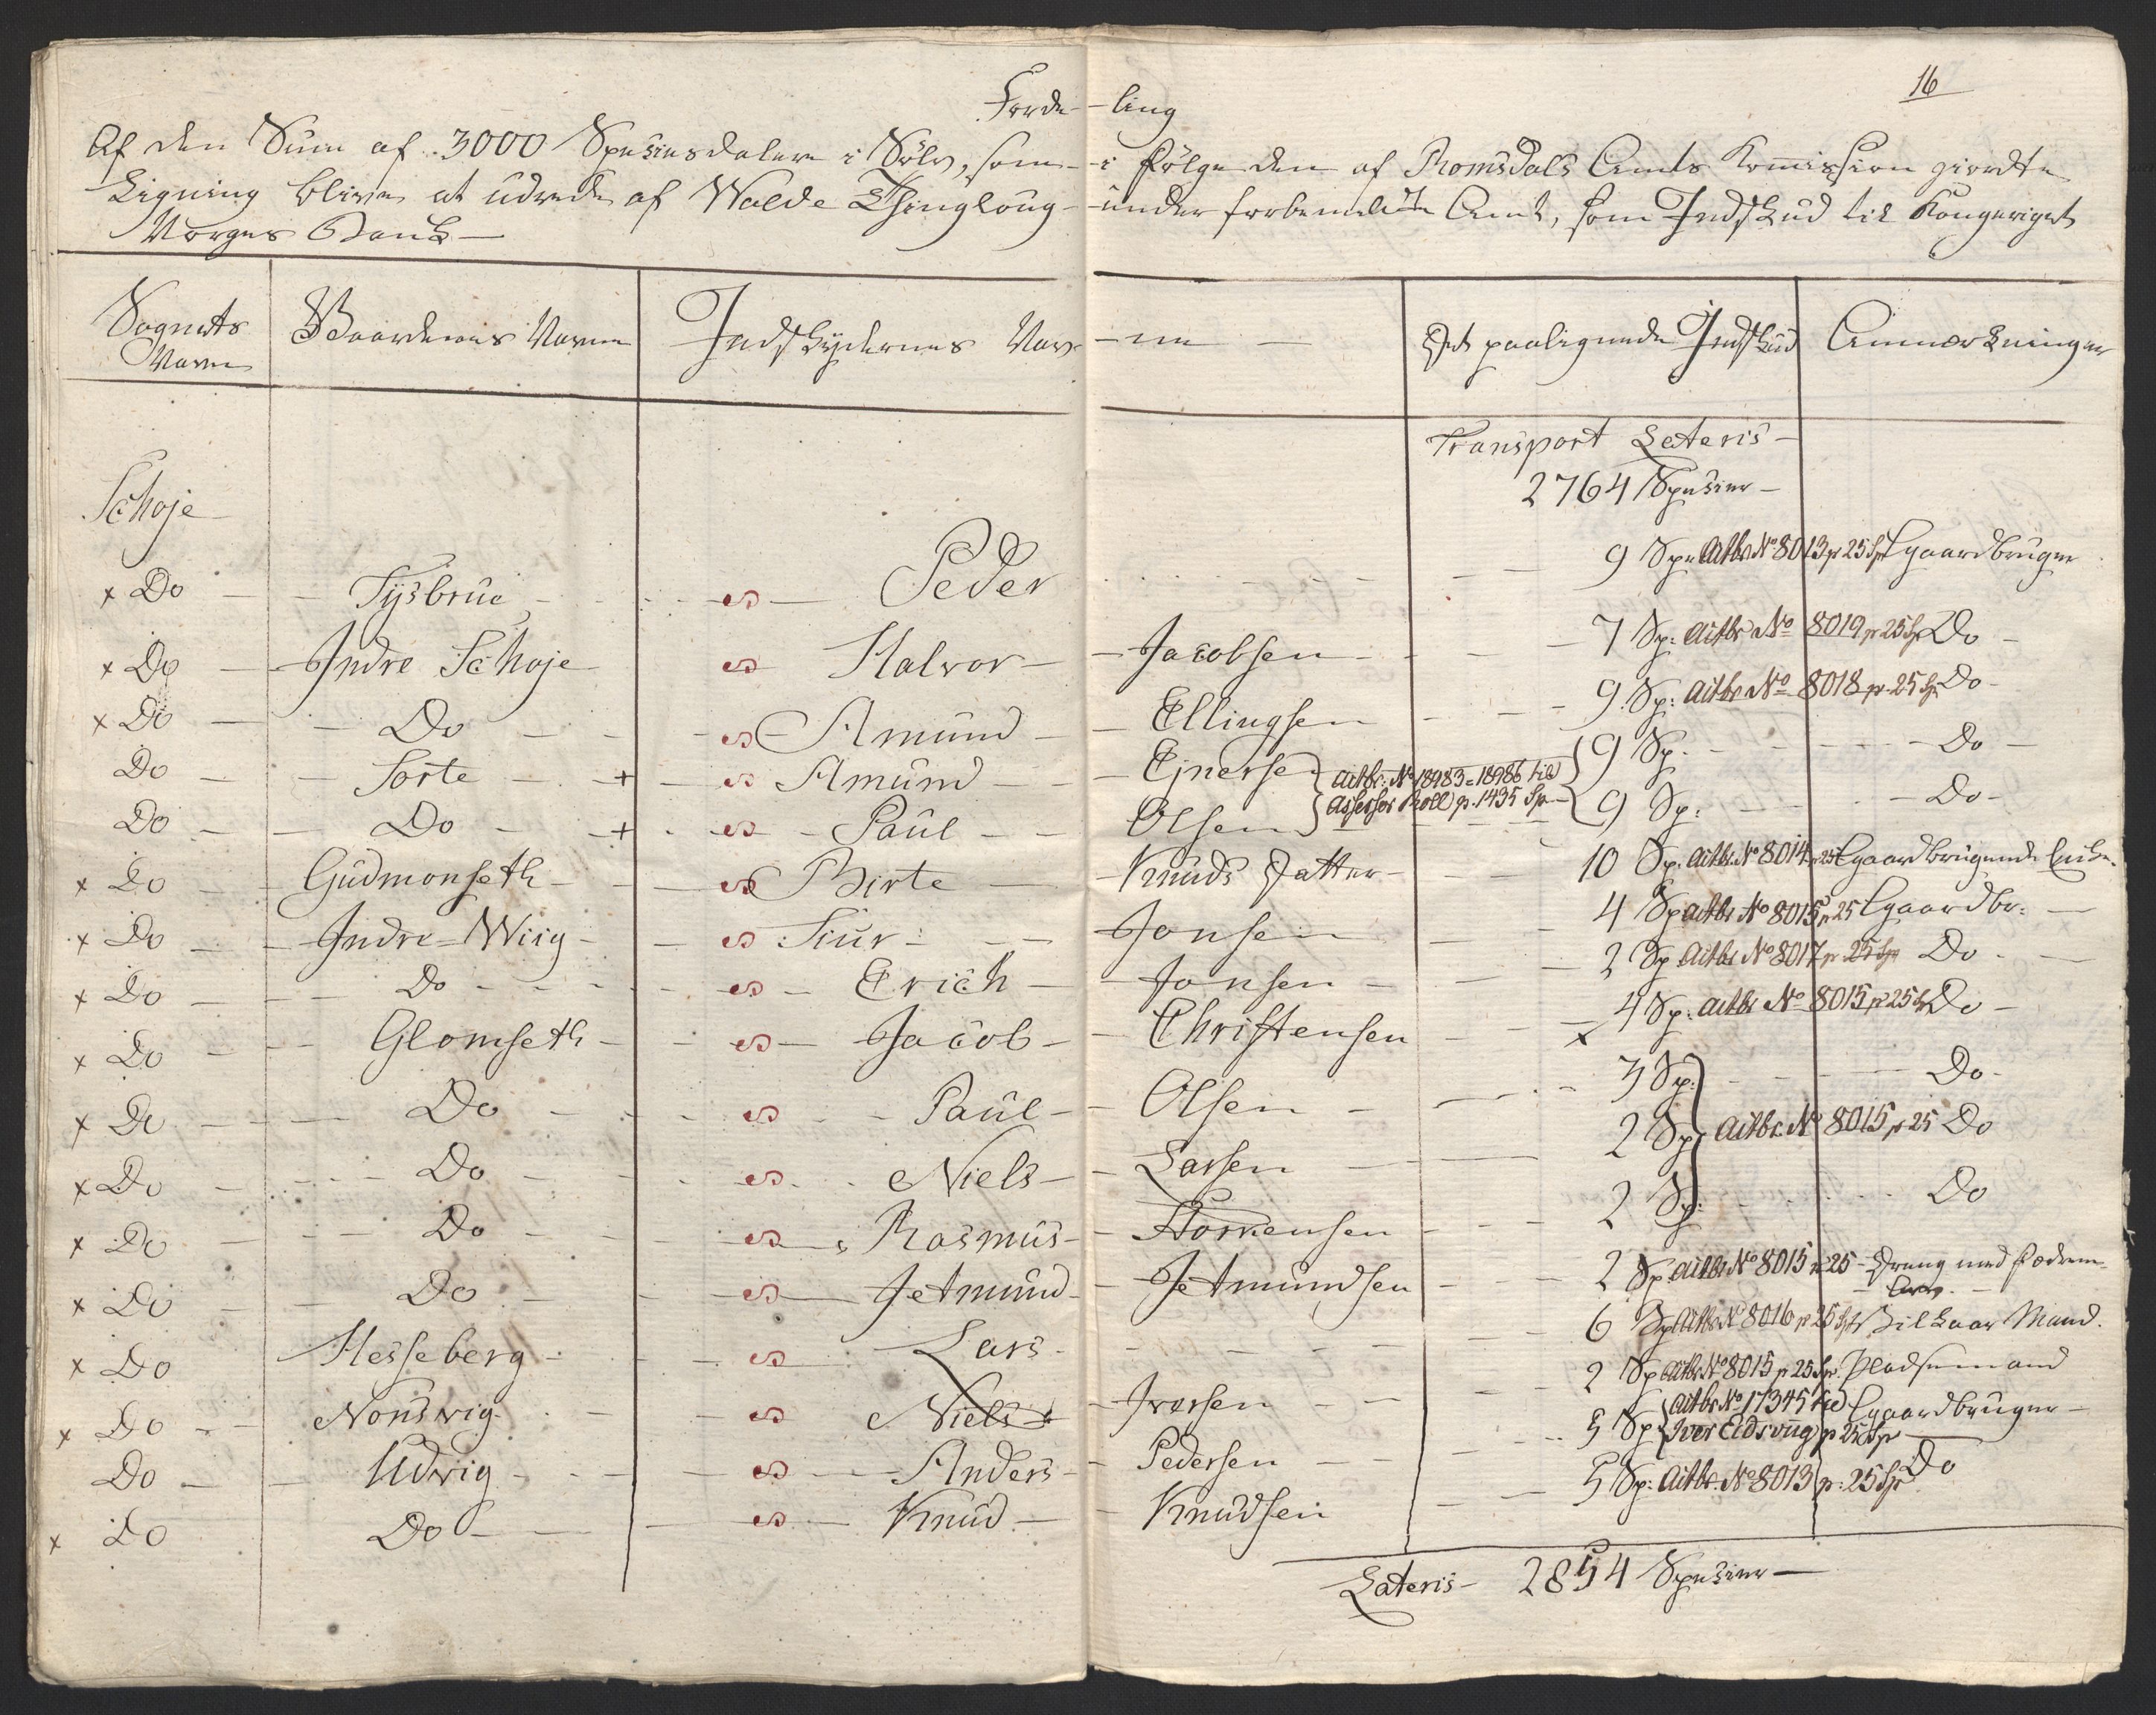 16
Forde- -ling
Af den Sum af 3000 Speciesdalere i Sölv, som - i fölge den af Romsdals Amts Kommission giordte
Ligning bliver at udrede af Wolde Thinglaug - under forbemeldte Amt, som Indskud til Kongeriget
Norges Bank -
Sognets Navn | Gaardenes Navne | Indskydernes Nav- -ne - | Det paalignende Indskud | Anmærkninger
Transport Lateris -
2764 Specier -
Schoje
x Do - Tysbrue - Peder - 9 Spe Actbr No 8013 p 25 Sp Gaardbruger
x Do - Indre Schoje - Halvor - Jacobsen - 7 Sp: Actbr No 8019 p 25 Sp Do -
x Do - Do - Amund - Ellingsen - 9 Sp: Actbr No 8018 p 25 Sp Do -
Do - Sorte - + Amund - Ejnersen } Actbr: No 18983 = 18986 til { 9 Sp. - Do -
Do - Do - + Paul - Olsen } Assessor Moll p. 1435 Sp - { 9 Sp: - Do -
x Do - Gudmonseth - Birte - Knuds Datter - 10 Sp. Actbr No 8014 p 25 Gaardbrugende Enke.
x Do - Indre = Wiig - Siur - Jonsen - 4 Sp Actbr No 8015 p 25 Gaardbr: -
x Do - Do - Erich - Jonsen - 2 Sp Actbr No 8017 p 25 Sp Do -
x Do - Glomseth - Jacob - Christensen - x 4 Sp. Actbr No 8015 p 25 Sp Do -
x Do - Do - Paul - Olsen - 3 Sp: } - Do -
x Do - Do - Niels - Larsen - 2 Sp } Actbr. No 8015 p 25 Do
x Do - Do - Rasmus - - 2 Sp: } - Do
x Do - Do - Jetmund - Jetmundsen - 2 Sp. Actbr No 8015 p 25 - Dreng med
x Do - Hesseberg - Lars - 6 Sp Actbr No 8016 p 25 Sp Vilkaar Mand.
x Do - Nonsvig - Niels - Iversen - 2 Sp Actbr No 8015 p 25 Sp. Pladsemand
Do - Udvig - Anders - Pedersen - 5 Sp { Actbr No 17345 til Iver Eidsvug p 25 Sp Gaardbruger -
x Do - Do - Knud - Knudsen - 5 Sp: Actbr. No 8013 p: 25 Sp Do
Lateris - 2854 Specier -